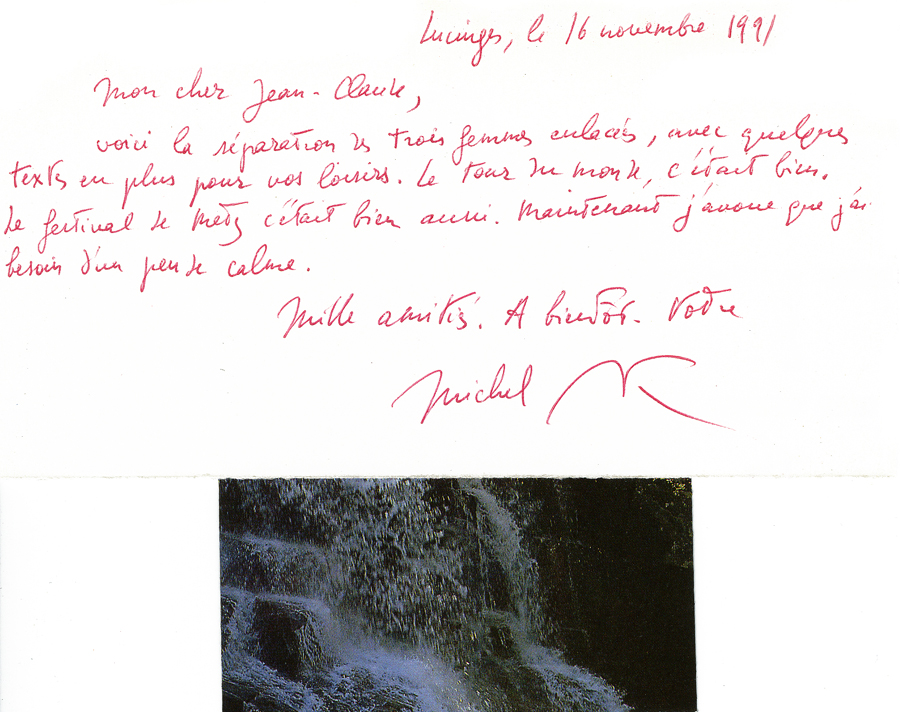 Lucinges, le 16 novembre 1991
Mon cher Jean-Claude,
voici la séparation des trois femmes enlacées, avec quelques
textes en plus pour vos loisirs. Le tour du monde, c'était bien.
Le festival de Metz c'était bien aussi. Maintenant j'avoue que j'ai
besoin d'un peu de calme.
Mille amitiés. A bientôt. Votre
Michel